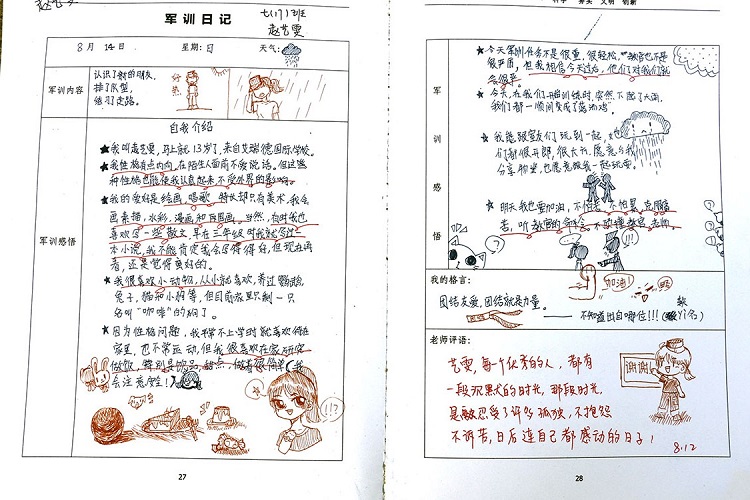 军训日记
七(17)班
赵艺雯
8月14日
星期:日
天气:
军训内容
认识了新的朋友,
排了队型,
练习走路。
军训感悟
自我介绍
★我叫赵艺雯,马上就13岁了,来自艾瑞德国际学校。
★我性格有点内向,在陌生人面前不爱说话。但这些
种性格也能使我认真起来不受外界的影响。
★我的爱好是绘画,唱歌,特长却只有美术,我会
画素描,水彩,漫画和国画,当然,有时我也
喜欢写一些散文,早在三年级时我就写过一
本小说,我不能肯定我会写得很好,但现在再
看,还是觉得蛮好的。
★我很喜欢小动物,从小就喜欢,养过鹦鹉,
兔子,猫和小狗等,但目前家里只剩一只
名叫“咖啡”的狗了。
★因为性格问题,我平常不上学时就喜欢待在
家里,也不常运动,但我很喜欢在家研究
做饭,特别是饮品,甜点,做着很简单(我
会注意安全!)
!!?
27
科学 务实 文明 创新
军训感悟
★今天军训任务不是很重,很轻松,教官也不是
很严肃,但我相信今天过后,他们对我们就
会很严。
★今天,在我们开始训练时,突然下起了大雨,
我们都一瞬间变成了落汤鸡。
★我能跟室友们玩到一起,
们都很开朗,很大方,愿意与我
分享物品,也愿意跟我一起玩耍。
★明天我也要加油,不怕苦,不怕累,克服困
苦,听教官的命令,不顶撞教官,老师。
?
!!!
我的格言:
团结友爱,团结就是力量。
加油!
——不知道出自哪位!!!
老师评语:
艺雯,每个优秀的人,都有
一段沉默的时光,那段时光,
是敢忍受了许多孤独,不抱怨
不诉苦,日后连自己都感动的日子!
谢谢!
8.12
28